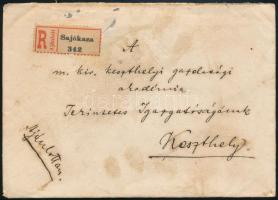 R
Ajánlott
Sajókaza
342
A
m. kir. keszthelyi gazdasági
akadémia
Tekintetes Igazgatóságának
Keszthely
Ajánlottan.